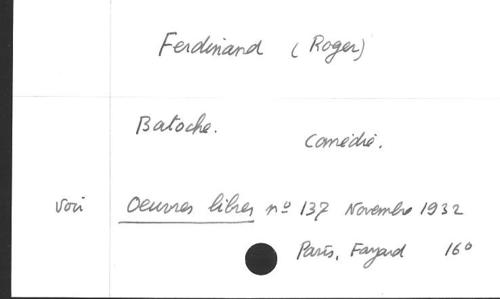 Ferdinand (Roger)
Batoche.
Comédie.
Voir Oeuvres libres nº 137 Novembre 1932
Paris, Fayard 16º